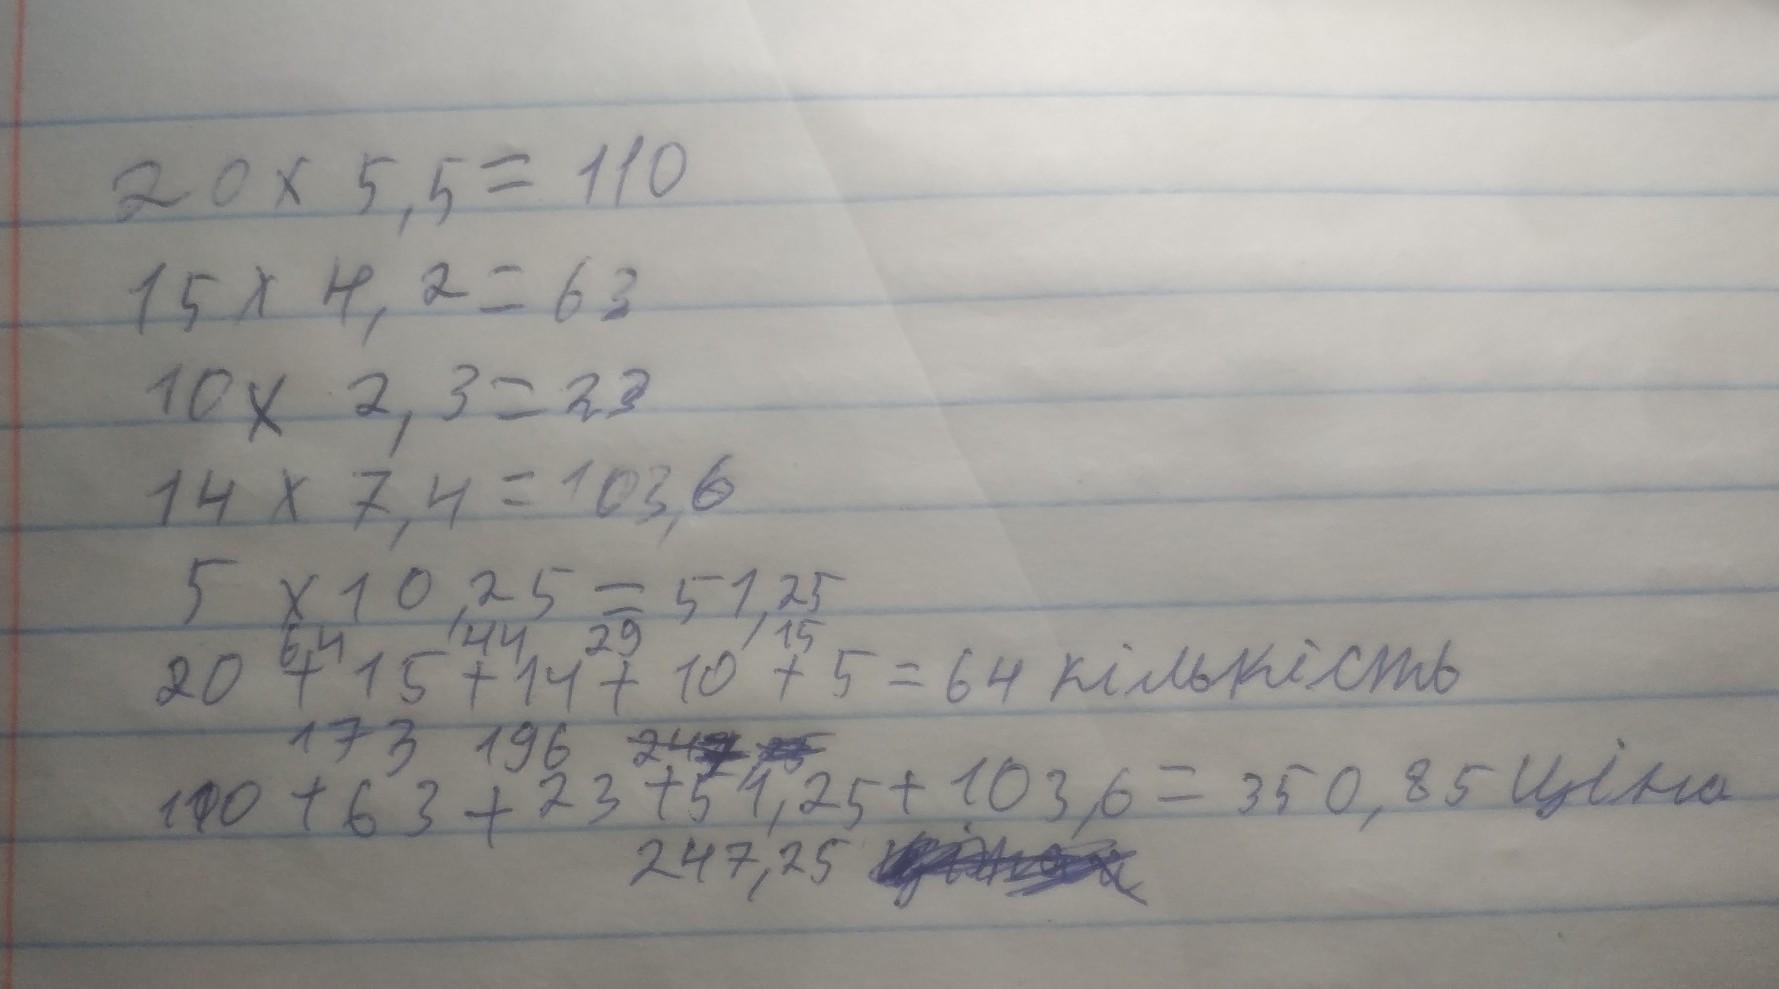 20 x 5,5 = 110
15 x 4,2 = 63
10 x 2,3 = 23
14 x 7,4 = 103,6
5 x 10,25 = 51,25
64 44 29 15
20 + 15 + 14 + 10 + 5 = 64 кількість
173 196
110 + 63 + 23 + 51,25 + 103,6 = 350,85 ціна
247,25